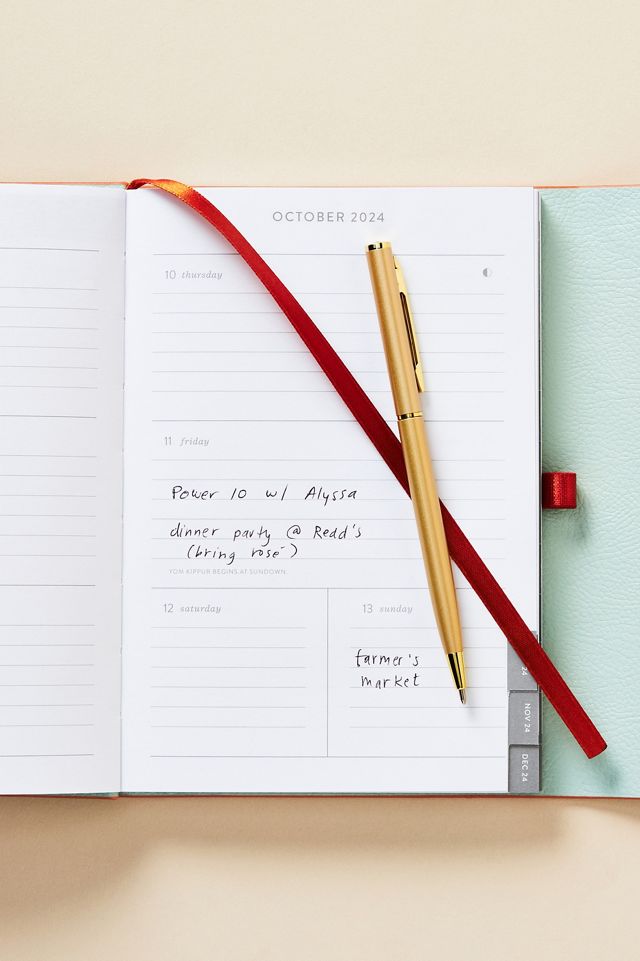 OCTOBER 2024
10 thursday
11 friday
Power 10 w/ Alyssa
dinner party @ Redd's
(bring rosé)
YOM KIPPUR BEGINS AT SUNDOWN
12 saturday
13 sunday
farmer's
market
24
NOV 24
DEC 24